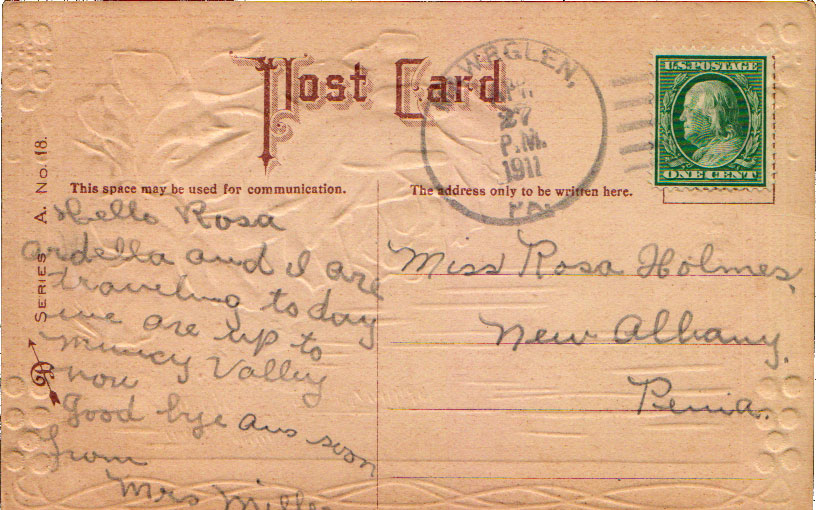 Post Card
WGLEN,
27
P.M.
1911
PA.
U.S. POSTAGE
ONE CENT
This space may be used for communication.
The address only to be written here.
SERIES A. No. 18.
Hello Rosa
Ardella and I are
traveling to day
we are up to
Muncy Valley
now
Good bye ans soon
from
Mrs Mille
Miss Rosa Holmes,
New Albany,
Penna.